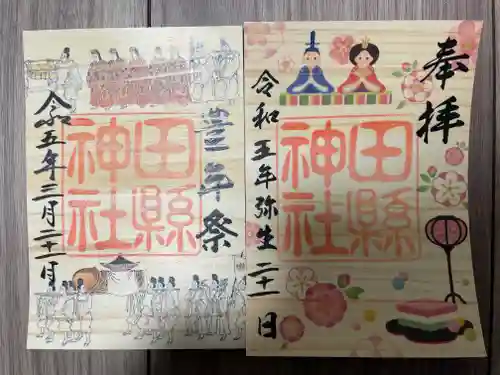 奉拝
田縣
神社
令和五年弥生二十一日
豊年祭
田縣
神社
令和五年三月二十一日